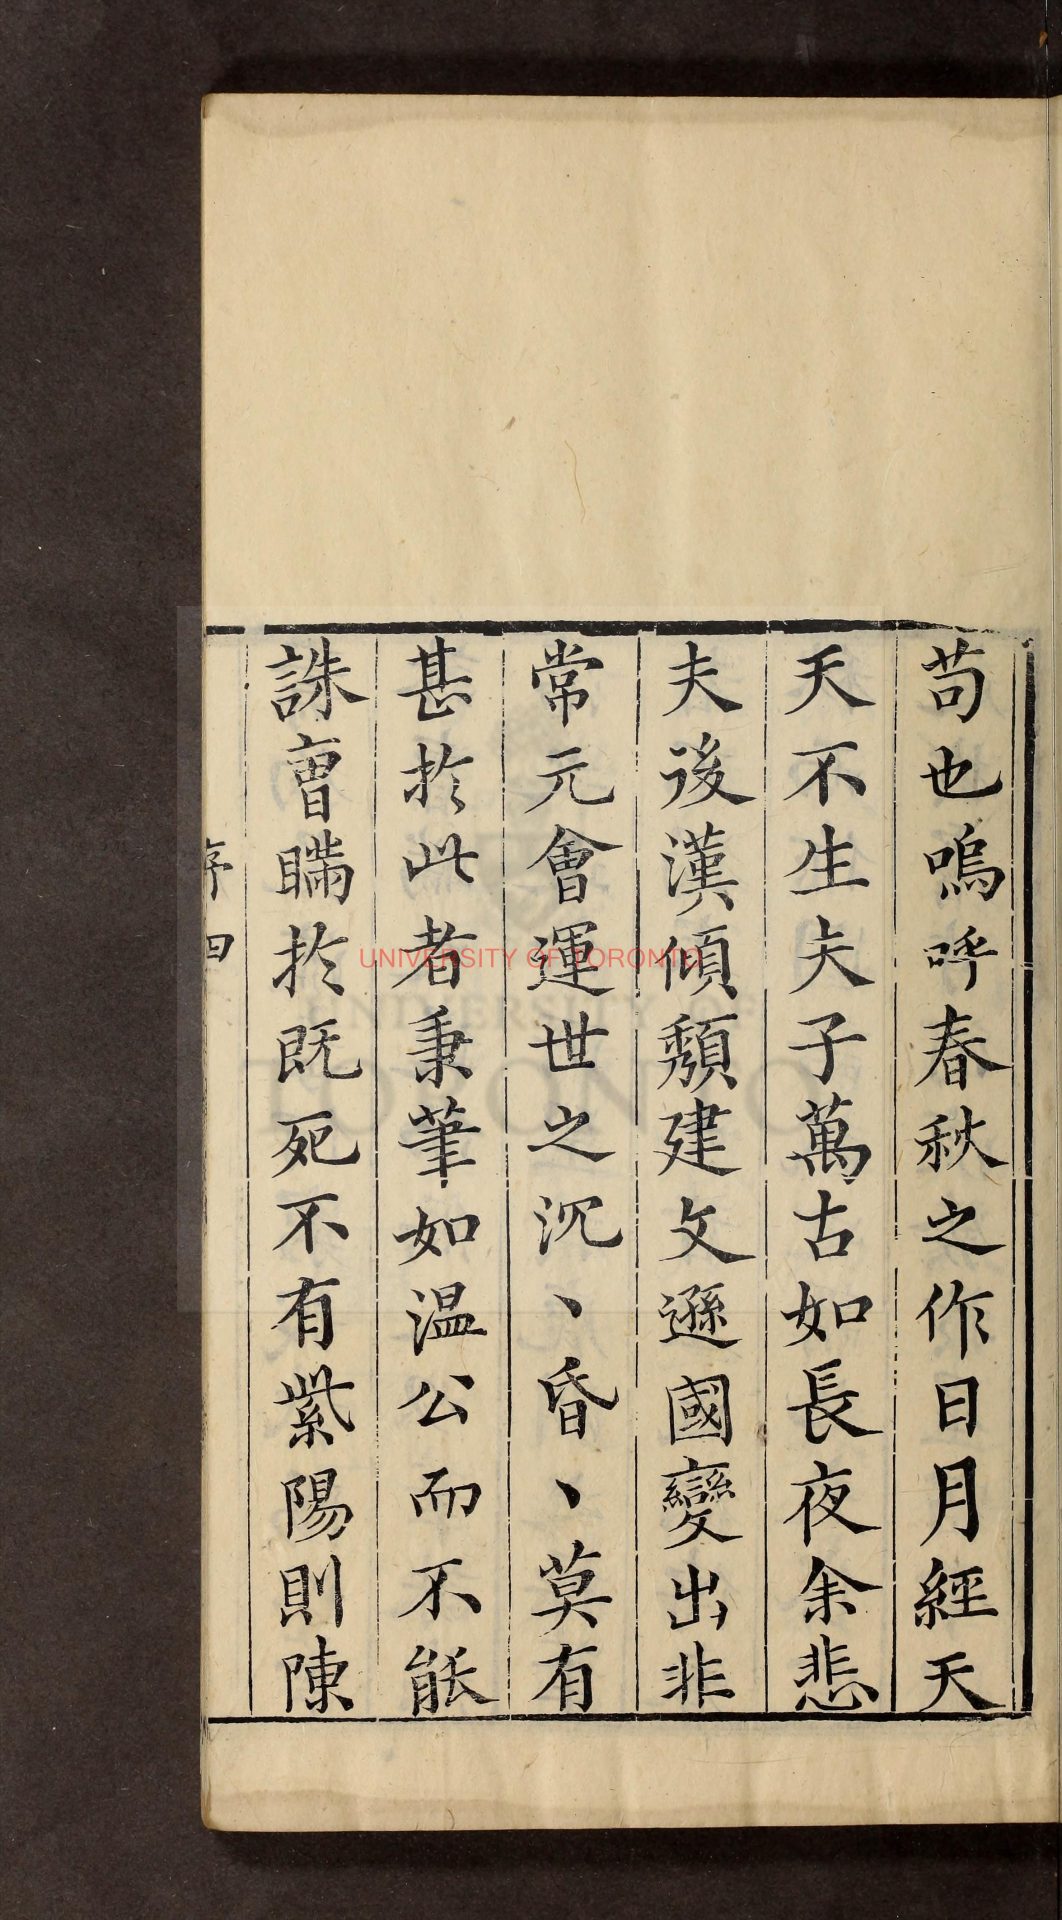 苟也嗚呼春秋之作日月經天
天不生夫子萬古如長夜余悲
夫後漢傾頽建文遜國變出非
常元會運世之沉、昏、莫有
甚於此者秉筆如温公而不能
誅曺瞞於既死不有紫陽則陳
序 四
UNIVERSITY OF TORONTO